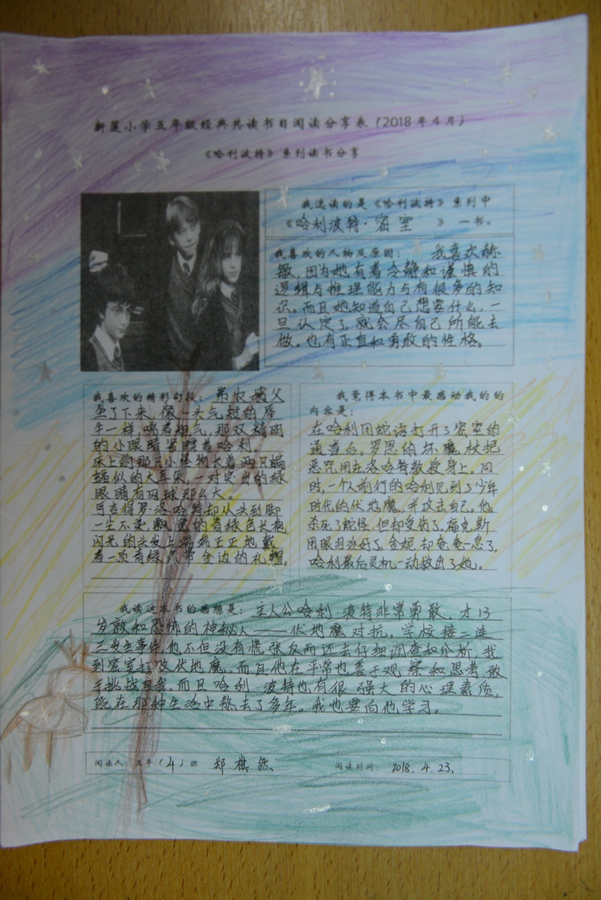 新莲小学五年级经典共读书目阅读分享表（2018年4月）
《哈利波特》系列读书分享
我选读的是《哈利波特》系列中
《哈利波特·密室》一书。
我喜欢的人物及原因： 我喜欢赫
敏，因为她有着冷静和谨慎的
逻辑与推理能力与有很多的知
识。而且她知道自己想要什么，一
旦认定了，就会尽自己所能去
做。也有正直和勇敢的性格。
我喜欢的精彩句段：弗农姨父
坐了下来，像一头气短的犀
牛一样，喘着粗气，那双精明
的小眼睛紧瞪着哈利。
床上的那只小怪物长着两只蝙
蝠似的大耳朵，一对突出的绿
眼睛有网球那么大。
可吉德罗·洛哈特却从头到脚
一尘不染，飘的青绿色长袍，
闪光的头发上端端正正地戴
着一顶青绿底带金边的礼帽。
我觉得本书中最感动我的的
内容是：
在哈利用蛇语打开了密室的
通道后。罗恩的坏魔杖把
恶咒用在洛哈特教授身上。同
时，一个人前行的哈利见到了少年
时代的伏地魔，并攻击自己。他
杀死了蛇怪，但却受伤了，福克斯
用眼泪治好了。金妮却奄奄一息了。
哈利最后灵机一动救出了她。
我读这本书的感想是：主人公哈利·波特非常勇敢、才13
岁敢和恐怖的神秘人——伏地魔对抗。学校接二连
三发生事件他不但没有慌张反而还去仔细调查和分析，找
到密室打败伏地魔。而且他在平常也善于观察和思考敢
于挑战自我。而且哈利·波特也有很强大的心理素质，
能在那种生活中称去了多年。我也要向他学习。
阅读人：五年（4）班 郑棋然 阅读时间：2018.4.23.